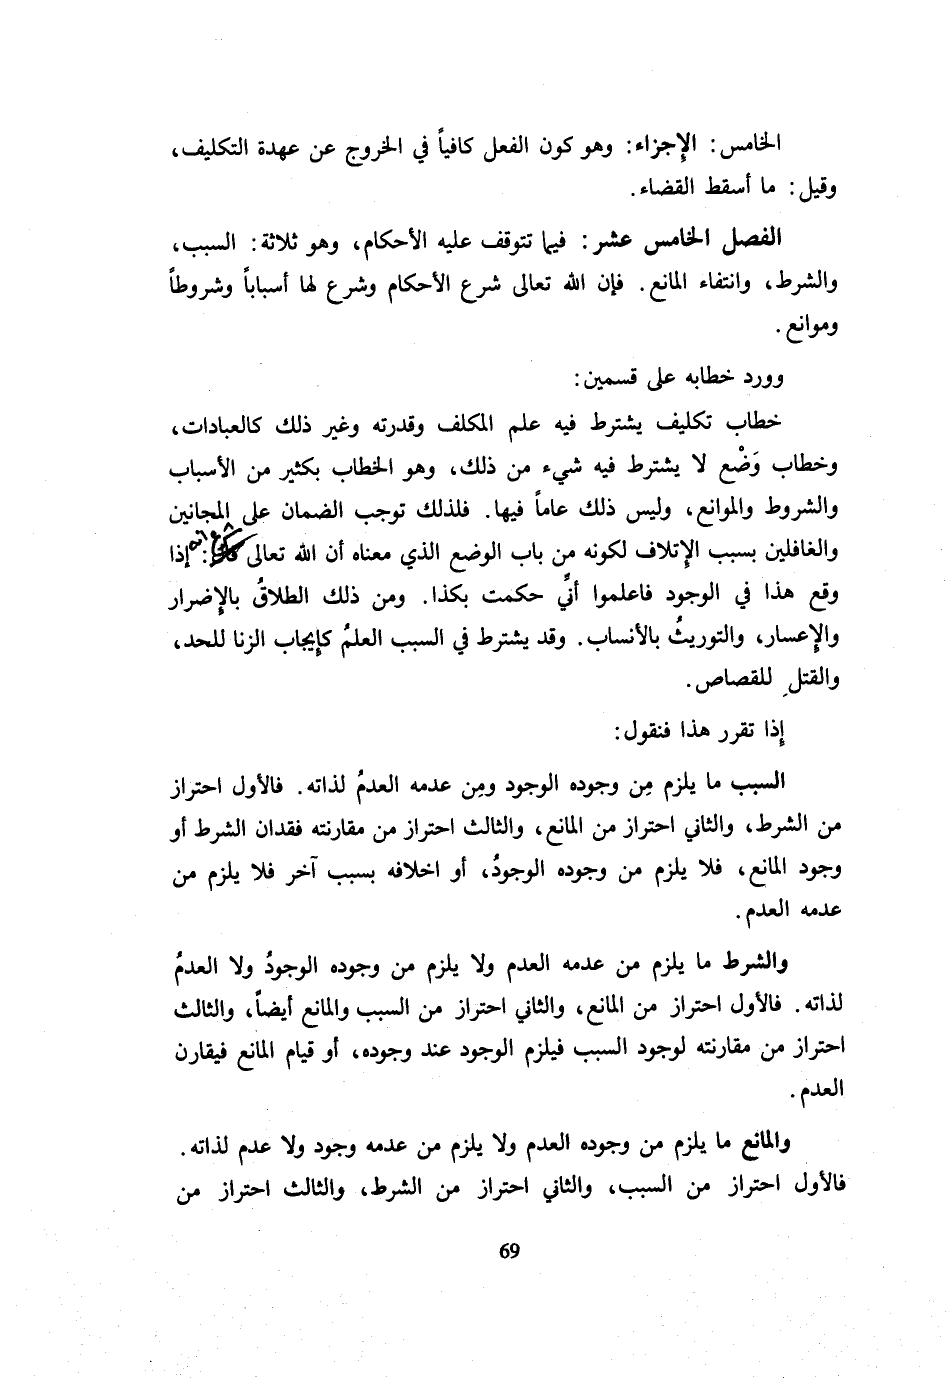 الخامس: الإجزاء: وهو كون الفعل كافياً في الخروج عن عهدة التكليف،
وقيل: ما أسقط القضاء.
الفصل الخامس عشر: فيما تتوقف عليه الأحكام، وهو ثلاثة: السبب،
والشرط، وانتفاء المانع. فإن الله تعالى شرع الأحكام وشرع لها أسباباً وشروطاً
وموانع.
وورد خطابه على قسمين:
خطاب تكليف يشترط فيه علم المكلف وقدرته وغير ذلك كالعبادات،
وخطاب وَضْع لا يشترط فيه شيء من ذلك، وهو الخطاب بكثير من الأسباب
والشروط والموانع، وليس ذلك عاماً فيها. فلذلك توجب الضمان على المجانين
والغافلين بسبب الإتلاف لكونه من باب الوضع الذي معناه أن الله تعالى : إذا
وقع هذا في الوجود فاعلموا أنيِّ حكمت بكذا. ومن ذلك الطلاقُ بالإضرار
والإعسار، والتوريثُ بالأنساب. وقد يشترط في السبب العلمُ كإيجاب الزنا للحد،
والقتلِ للقصاص.
إذا تقرر هذا فنقول:
السبب ما يلزم مِن وجوده الوجود ومِن عدمه العدمُ لذاته. فالأول احتراز
من الشرط، والثاني احتراز من المانع، والثالث احتراز من مقارنته فقدان الشرط أو
وجود المانع، فلا يلزم من وجوده الوجودُ، أو اخلافه بسبب آخر فلا يلزم من
عدمه العدم.
والشرط ما يلزم من عدمه العدم ولا يلزم من وجوده الوجودُ ولا العدمُ
لذاته. فالأول احتراز من المانع، والثاني احتراز من السبب والمانع أيضاً، والثالث
احتراز من مقارنته لوجود السبب فيلزم الوجود عند وجوده، أو قيام المانع فيقارن
العدم.
والمانع ما يلزم من وجوده العدم ولا يلزم من عدمه وجود ولا عدم لذاته.
فالأول احتراز من السبب، والثاني احتراز من الشرط، والثالث احتراز من
69